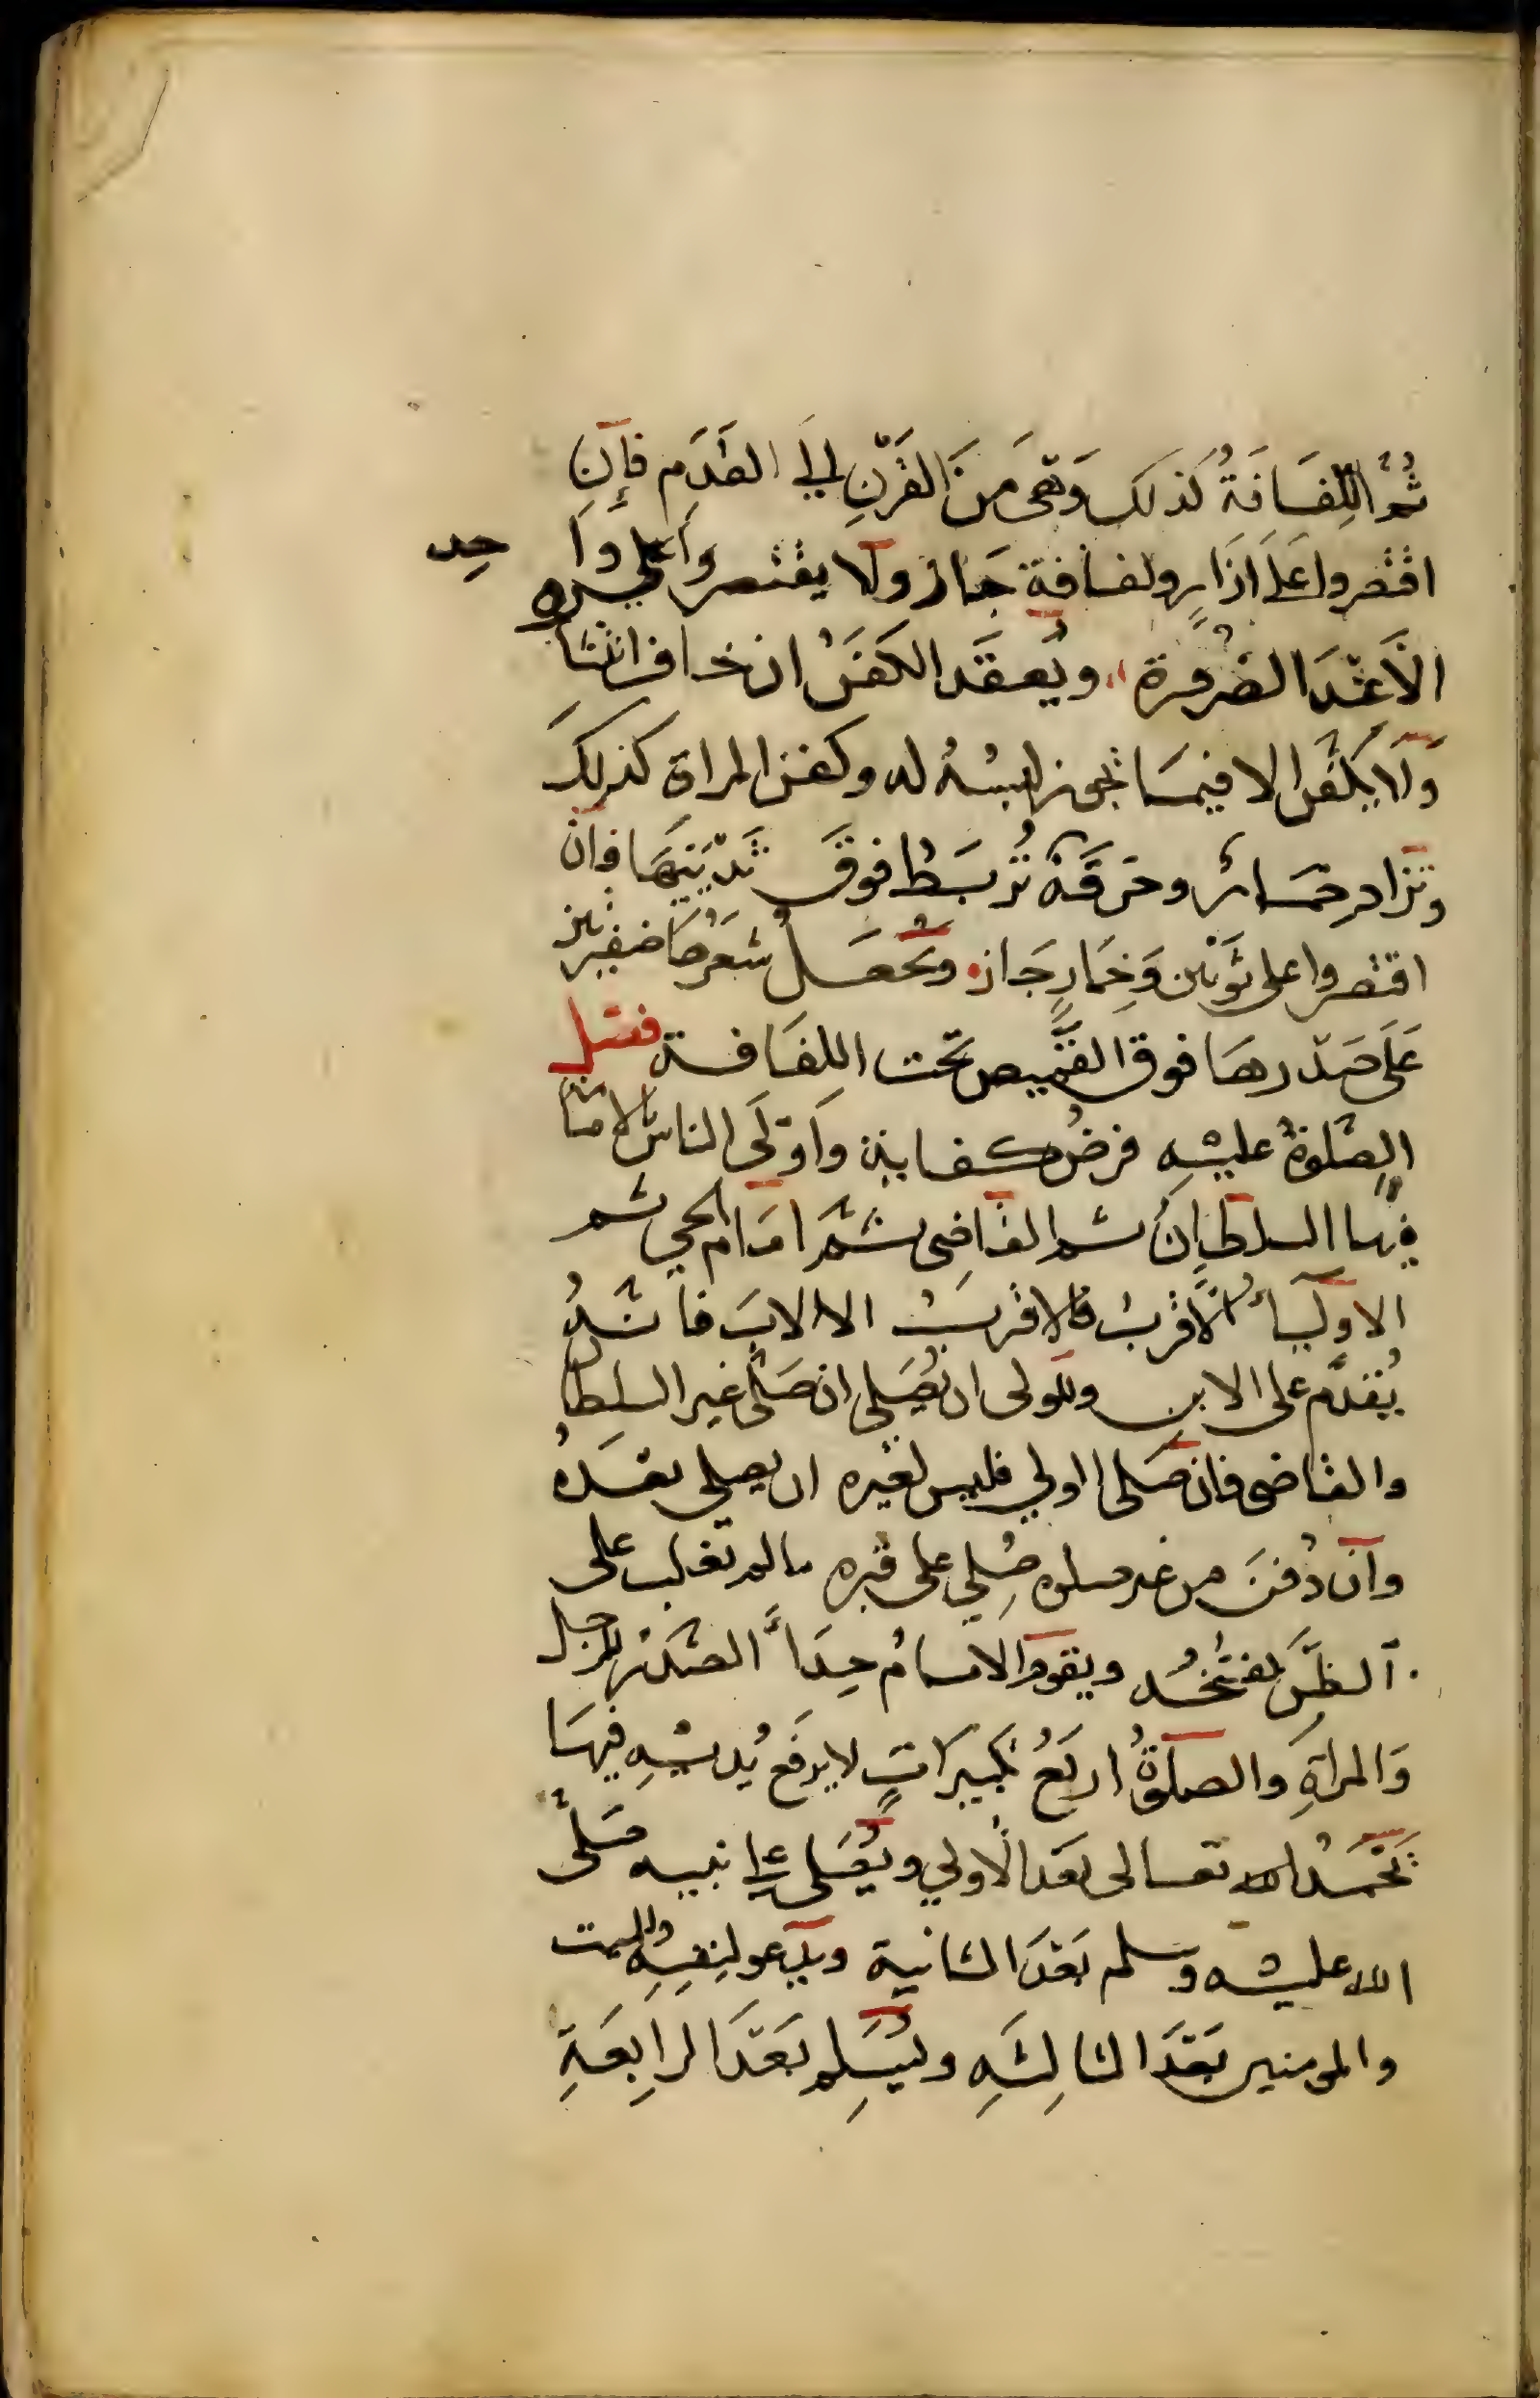 ثُمَّ اللِّفَافَةُ كَذلك وَهِيَ مِنَ القَرْنِ اِلى القَدَمِ فَإنِ
اقتصروا عَلَى اِزَارٍ ولفافة جَاز ولا يقتصروا على واحد
الّا عِنْدَ الضرورة ويُعقَد الكَفَنُ ان خافوا انتشاره
وَلا يُكَفَّن الا فيمَا يجوز لبسُهُ له وكفن المراة كذلك
وتزاد خمَارًا وخرقَة تُربَط فوقَ ثَدْيَيْهَا فان
اقتصروا على ثوبَيْن وَخِمَارٍ جَاز ويُجعَل شعَرُهَا ضفيرتين
عَلَى صَدْرهَا فوق القَمِيص تحت اللِفَافة فصل
الصَّلوةُ عليْهِ فرضُ كفاية وَاَوْلَى الناس بالامامة
فيها السلطانُ ثم القاضِى ثمَّ امَام الحي ثم
الاولياءُ الاَقربُ فالاقربُ الا الابَ فانهُ
يُقدَّم على الابن وللولى ان يُصَلى ان صَلَّى غير السلطان
والقاضى فان صَلى الولي فليس لغيره ان يصلى بعدَهُ
وان دُفنَ من غير صلوة صُلِي على قبره ما لم تغلب على
الظَّنِّ تفسُّخُه ويقوم الامامُ حِذَاءَ الصَّدْر للرجل
وَالمراَةِ وَالصلوةُ اربَعُ تكبيرَاتٍ لا يرفَع يُديْهِ فيهَا
يَحْمَدُ الله تعالى بعَد الاُولي ويُصَلى على نبيه صَلى
الله عليْه وسلم بَعْدَ الثانية ويدعو لِنفسِهِ وللميت
والمومنين بَعْدَ الثالِثَهِ ويُسَلِم بَعْدَ الرابِعَةِ